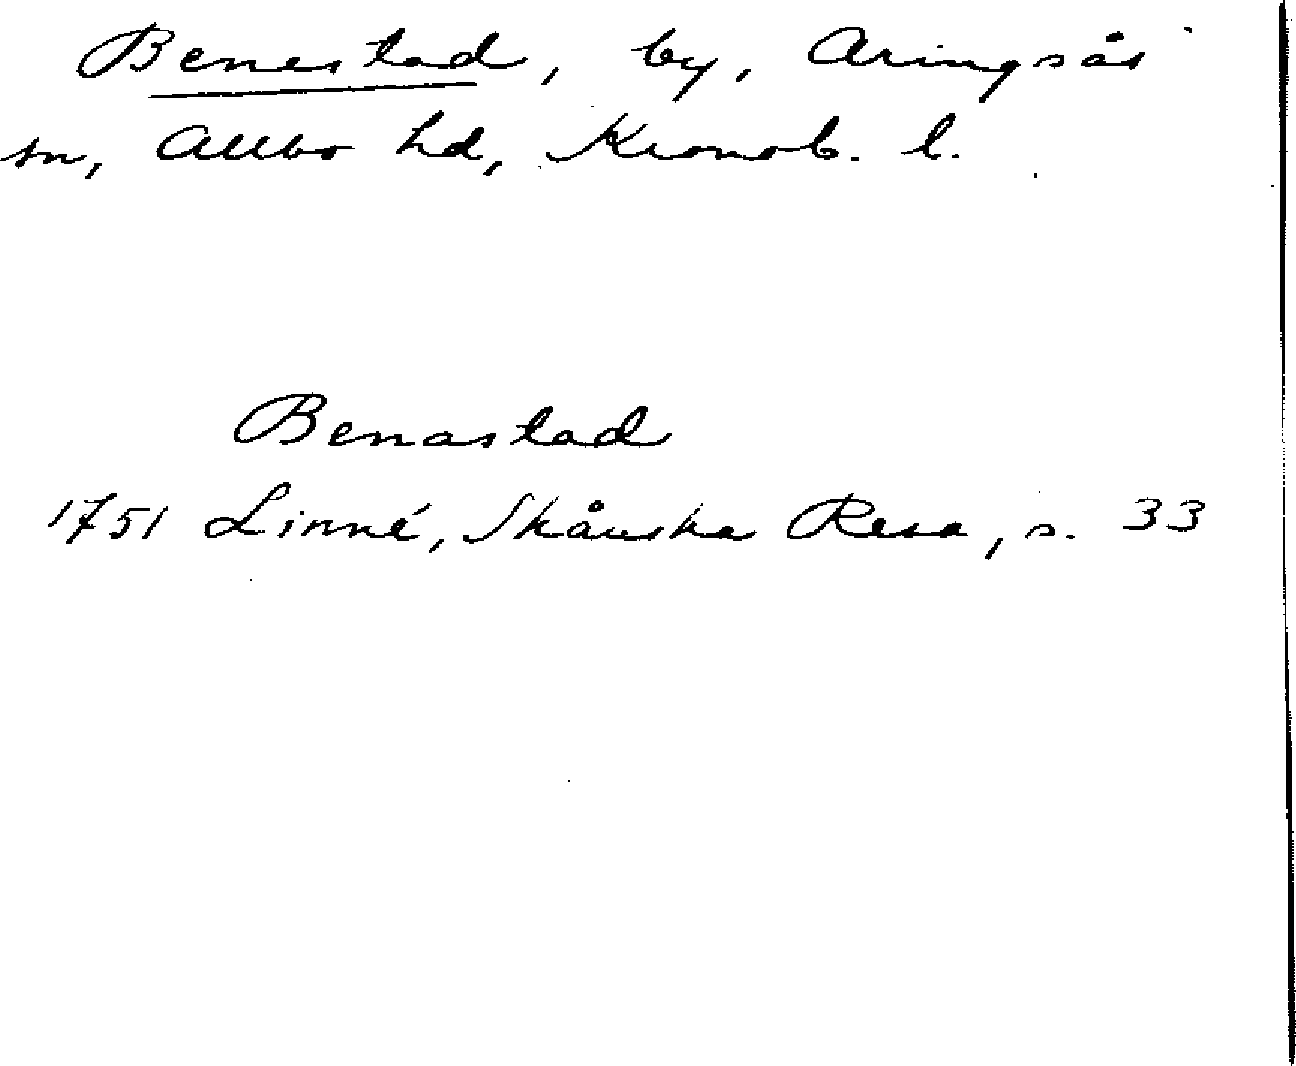 Benestad, by, Aringsås
sn, Allbo hd, Kronob. l.
Benastad
1751 Linné, Skånska Resa, s. 33